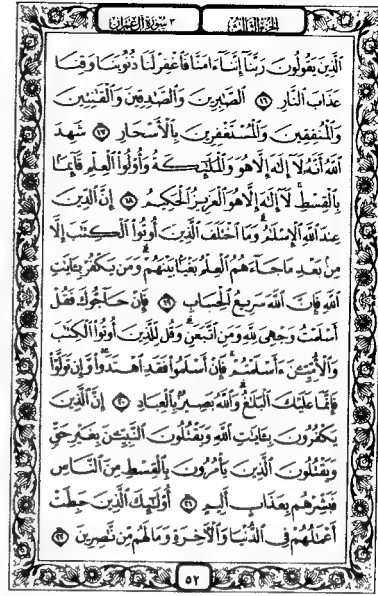 الجزء الثالث ٣ سورة آل عمران
ٱلَّذِينَ يَقُولُونَ رَبَّنَآ إِنَّنَآ ءَامَنَّا فَٱغْفِرْ لَنَا ذُنُوبَنَا وَقِنَا
عَذَابَ ٱلنَّارِ ١٦ ٱلصَّٰبِرِينَ وَٱلصَّٰدِقِينَ وَٱلْقَٰنِتِينَ
وَٱلْمُنفِقِينَ وَٱلْمُسْتَغْفِرِينَ بِٱلْأَسْحَارِ ١٧ شَهِدَ
ٱللَّهُ أَنَّهُۥ لَآ إِلَٰهَ إِلَّا هُوَ وَٱلْمَلَٰٓئِكَةُ وَأُو۟لُوا۟ ٱلْعِلْمِ قَآئِمًۢا
بِٱلْقِسْطِ ۚ لَآ إِلَٰهَ إِلَّا هُوَ ٱلْعَزِيزُ ٱلْحَكِيمُ ١٨ إِنَّ ٱلدِّينَ
عِندَ ٱللَّهِ ٱلْإِسْلَٰمُ ۗ وَمَا ٱخْتَلَفَ ٱلَّذِينَ أُوتُوا۟ ٱلْكِتَٰبَ إِلَّا
مِنۢ بَعْدِ مَا جَآءَهُمُ ٱلْعِلْمُ بَغْيًۢا بَيْنَهُمْ ۗ وَمَن يَكْفُرْ بِـَٔايَٰتِ
ٱللَّهِ فَإِنَّ ٱللَّهَ سَرِيعُ ٱلْحِسَابِ ١٩ فَإِنْ حَآجُّوكَ فَقُلْ
أَسْلَمْتُ وَجْهِىَ لِلَّهِ وَمَنِ ٱتَّبَعَنِ ۗ وَقُل لِّلَّذِينَ أُوتُوا۟ ٱلْكِتَٰبَ
وَٱلْأُمِّيِّـۧنَ ءَأَسْلَمْتُمْ ۚ فَإِنْ أَسْلَمُوا۟ فَقَدِ ٱهْتَدَوا۟ ۖ وَّإِن تَوَلَّوْا۟
فَإِنَّمَا عَلَيْكَ ٱلْبَلَٰغُ ۗ وَٱللَّهُ بَصِيرٌۢ بِٱلْعِبَادِ ٢٠ إِنَّ ٱلَّذِينَ
يَكْفُرُونَ بِـَٔايَٰتِ ٱللَّهِ وَيَقْتُلُونَ ٱلنَّبِيِّـۧنَ بِغَيْرِ حَقٍّ
وَيَقْتُلُونَ ٱلَّذِينَ يَأْمُرُونَ بِٱلْقِسْطِ مِنَ ٱلنَّاسِ
فَبَشِّرْهُم بِعَذَابٍ أَلِيمٍ ٢١ أُو۟لَٰٓئِكَ ٱلَّذِينَ حَبِطَتْ
أَعْمَٰلُهُمْ فِى ٱلدُّنْيَا وَٱلْءَاخِرَةِ وَمَا لَهُم مِّن نَّٰصِرِينَ ٢٢
٥٢